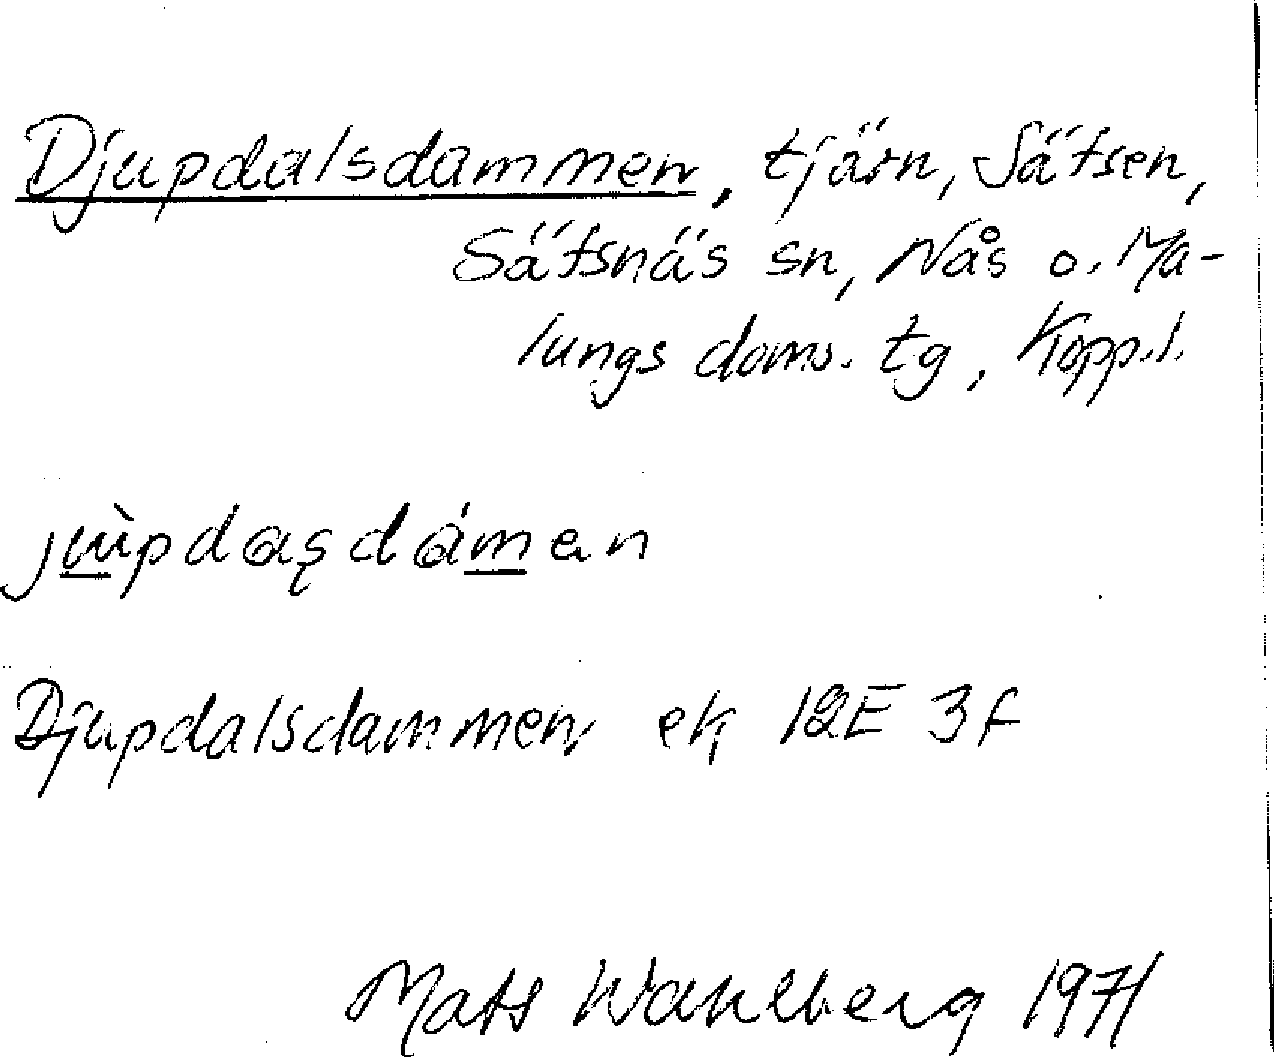 Djupdalsdammen, tjärn, Säfsen,
Säfsnäs sn, Nås o. Ma-
lungs doms. tg, Kopp.l.
Djupdalsdammen ek 12E 3f
Mats Wahlberg 1971